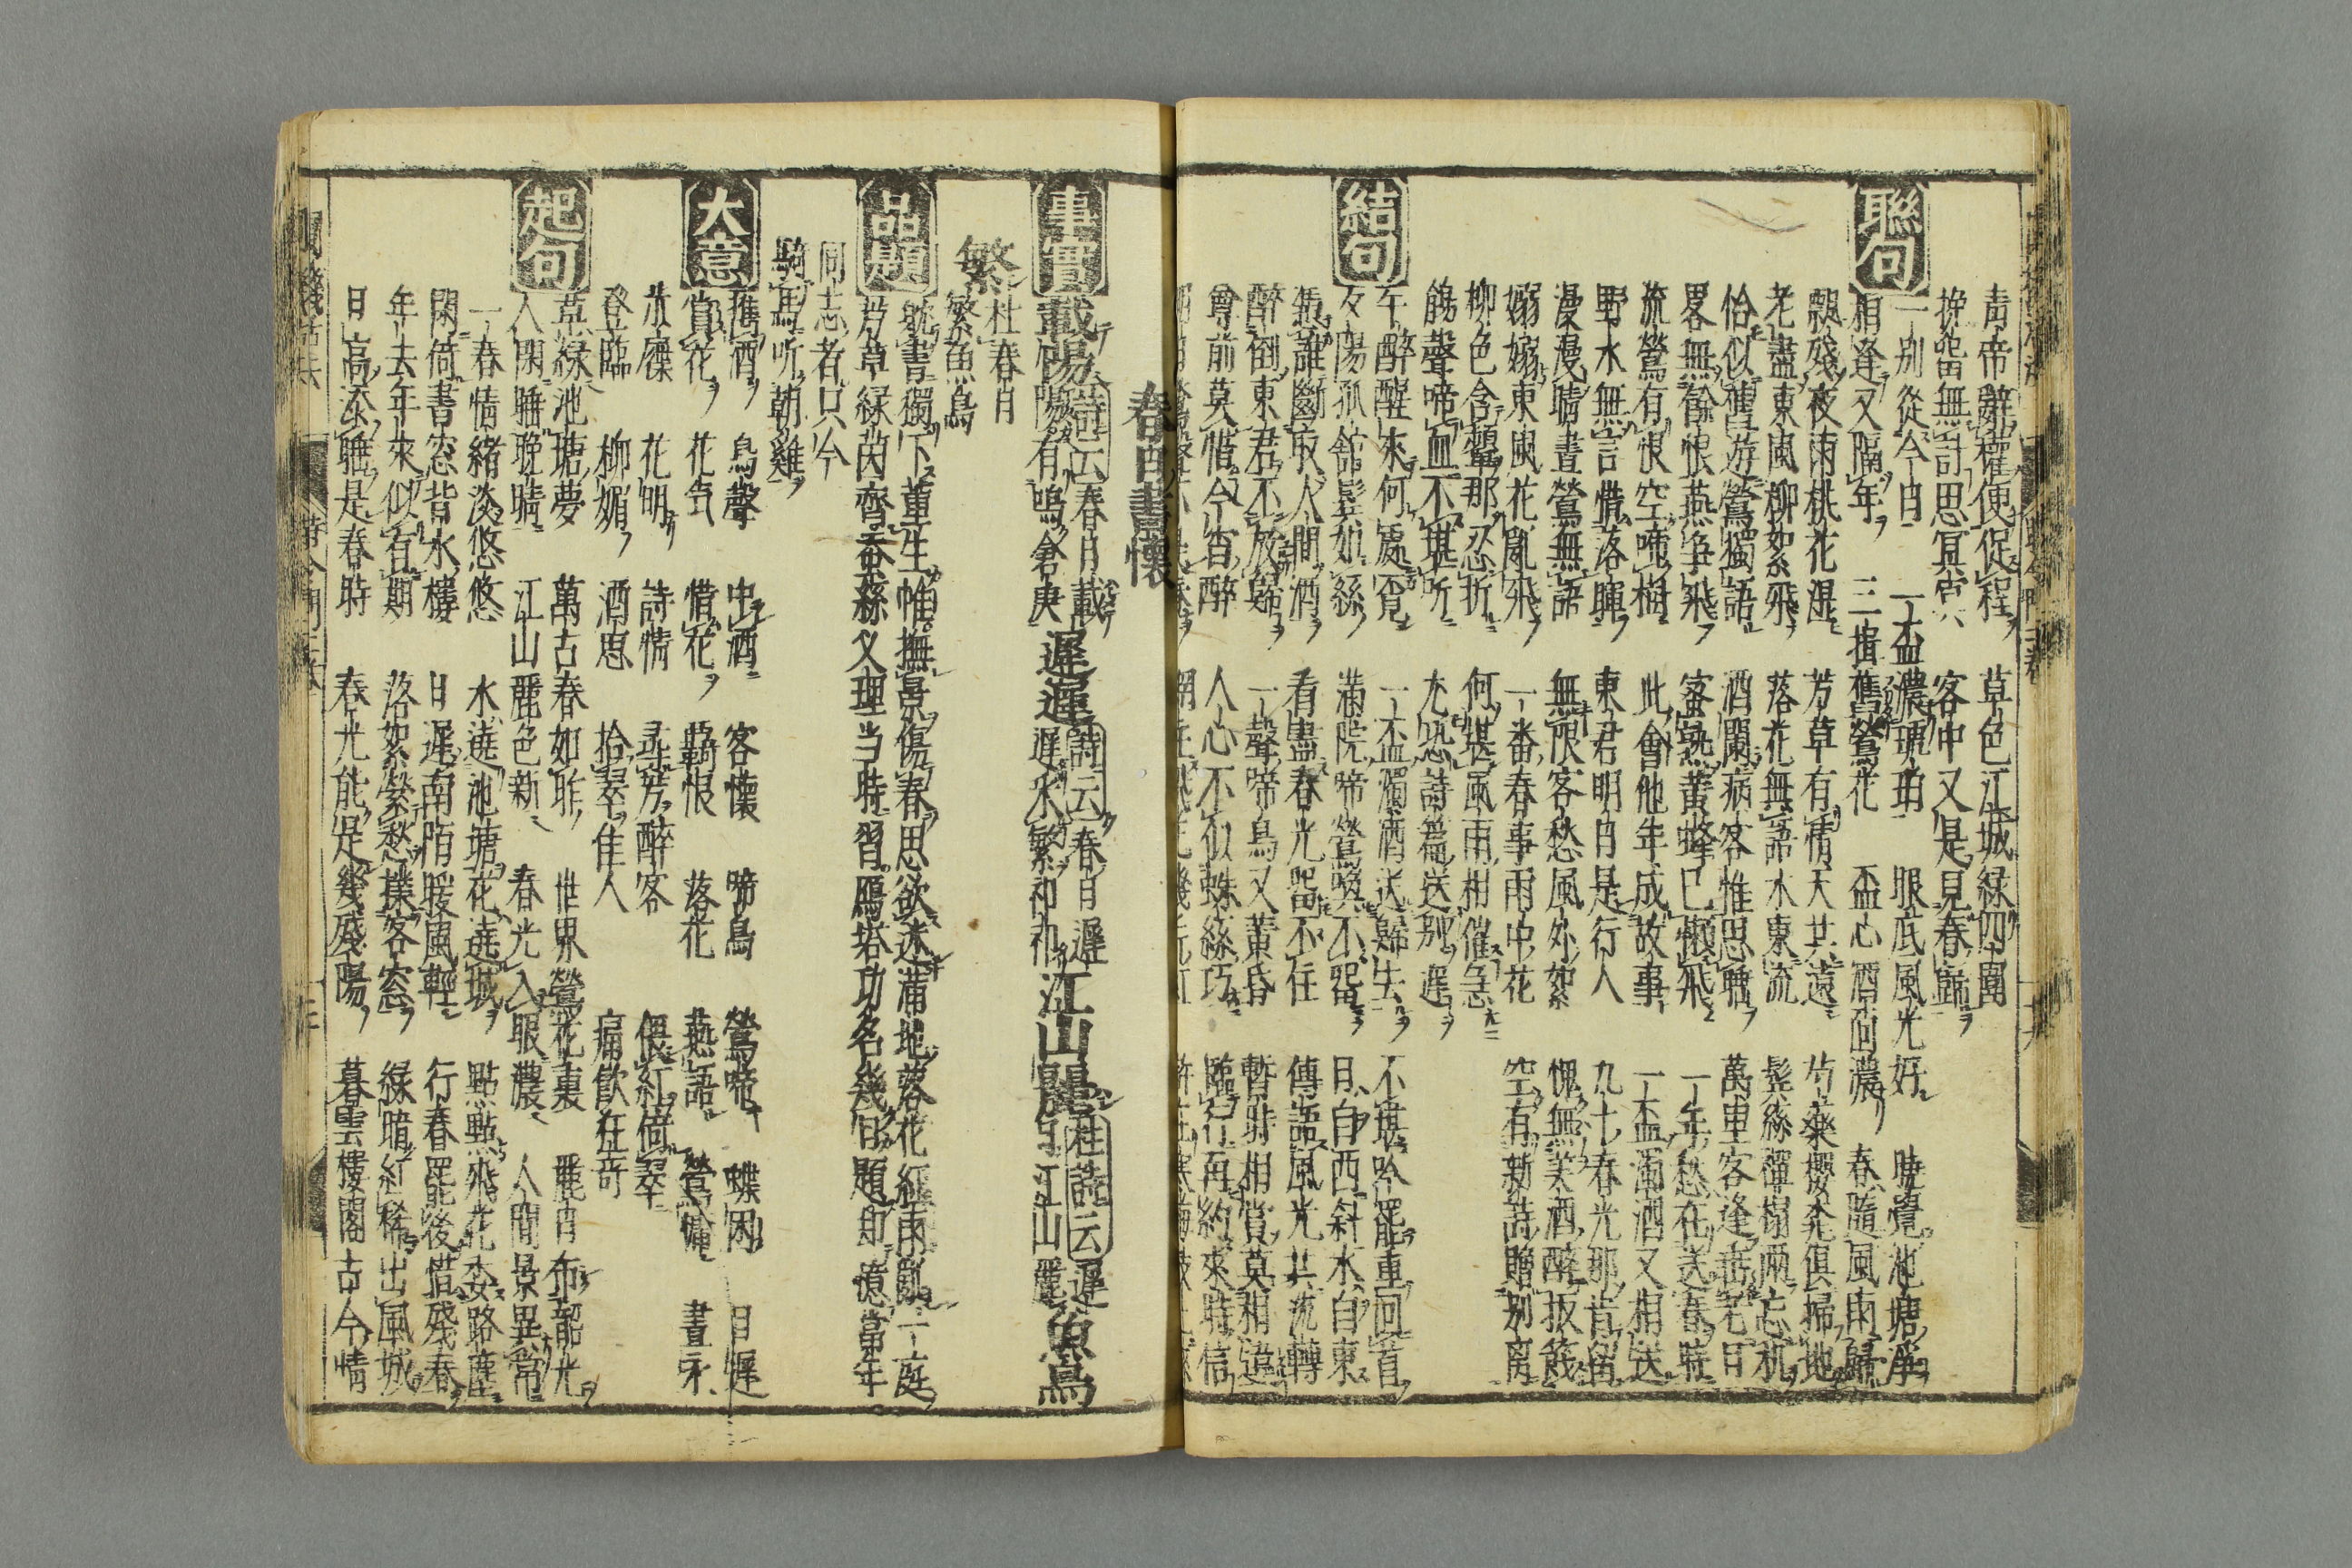 青帝辭權便促程 草色江城綠四圍
挽留無計思冥冥 客中又是見春歸
聯句
一別從今日 一盃濃琥珀 眼底風光好 曉覺池塘淨
相逢又隔年 三揖舊鶯花 盃心酒面濃 春隨風雨歸
飄殘夜雨桃花濕 芳草有情天共遠 芍藥櫻桃俱掃地
老盡東風柳絮飛 落花無語水東流 鬓絲禪榻兩忘机
恰似舊游鶯獨語 酒闌病客惟思睡 萬里客逢垂老日
畧無餘恨燕争飛 蜜熟黄蜂已懶飛 一年愁在送春時
流鶯有恨空啼樹 此會他年成故事 一盃濁酒又相送
野水無言惜落暉 東君明日是行人 九十春光那肯留
漫漫晴晝鶯無語 無限客愁風外絮 愧無美酒醉扳餞
嫋嫋東風花亂飛 一番春事雨中花 空有新詩贈別离
柳色含顰那忍折 何堪風雨相催急
鵑聲啼血不堪听 尤恐詩篇送別遲
結句
午醉醒來何處覓 一盃濁酒送歸去 不堪吟罷重回首
夕陽孤舘鬓如絲 滿院啼鶯喚不留 日自西斜水自東
憑誰斷取人間酒 看盡春光留不住 傳語風光共流轉
醉倒東君不放歸 一聲啼鳥又黄昏 暫時相賞莫相違
尊前莫惜今宵醉 人心不似蛛絲巧 臨行再約來時信
春日書懷
事實
載陽 詩云春日載陽有鳴倉庚 遲遲 詩云春日遲遲采繁祁祁 江山麗 杜詩云遲日江山麗 魚鳥
繁
杜春日
繁魚鳥
品題
觥書獨下董生帷撫景傷春思欲迷滿地落花紅雨亂一庭
芳草緑茵齊蚕蘇义理当時習鴈塔功名幾佀題却憶當年
同志者只今
駒馬听朝雞
大意
携酒 鳥聲 中酒 客懷 啼鳥 鶯啼 蝶困 日遲
賞花 花気 惜花 羇恨 落花 燕語 鶯慵 晝永
放懷 花明 詩情 尋芳 醉客 偎紅倚翠
登臨 柳媚 酒思 拾翠 佳人 痛飲狂奇
起句
草緑池塘夢 萬古春如昨 世界鶯花裏 麗日布韶光
人閑睡晚晴 江山麗色新 春光入眼濃 人間景異常
一春情緒淡悠悠 水遶池塘花遶城 點點飛花委路塵
閑倚書窓背水樓 日遲南陌暖風輕 行春罷後惜殘春
年去年來似有期 落絮縈愁撲客窓 緑暗紅稀出風城
日高添睡是春時 春光能是幾殘陽 暮雲樓閣古今情